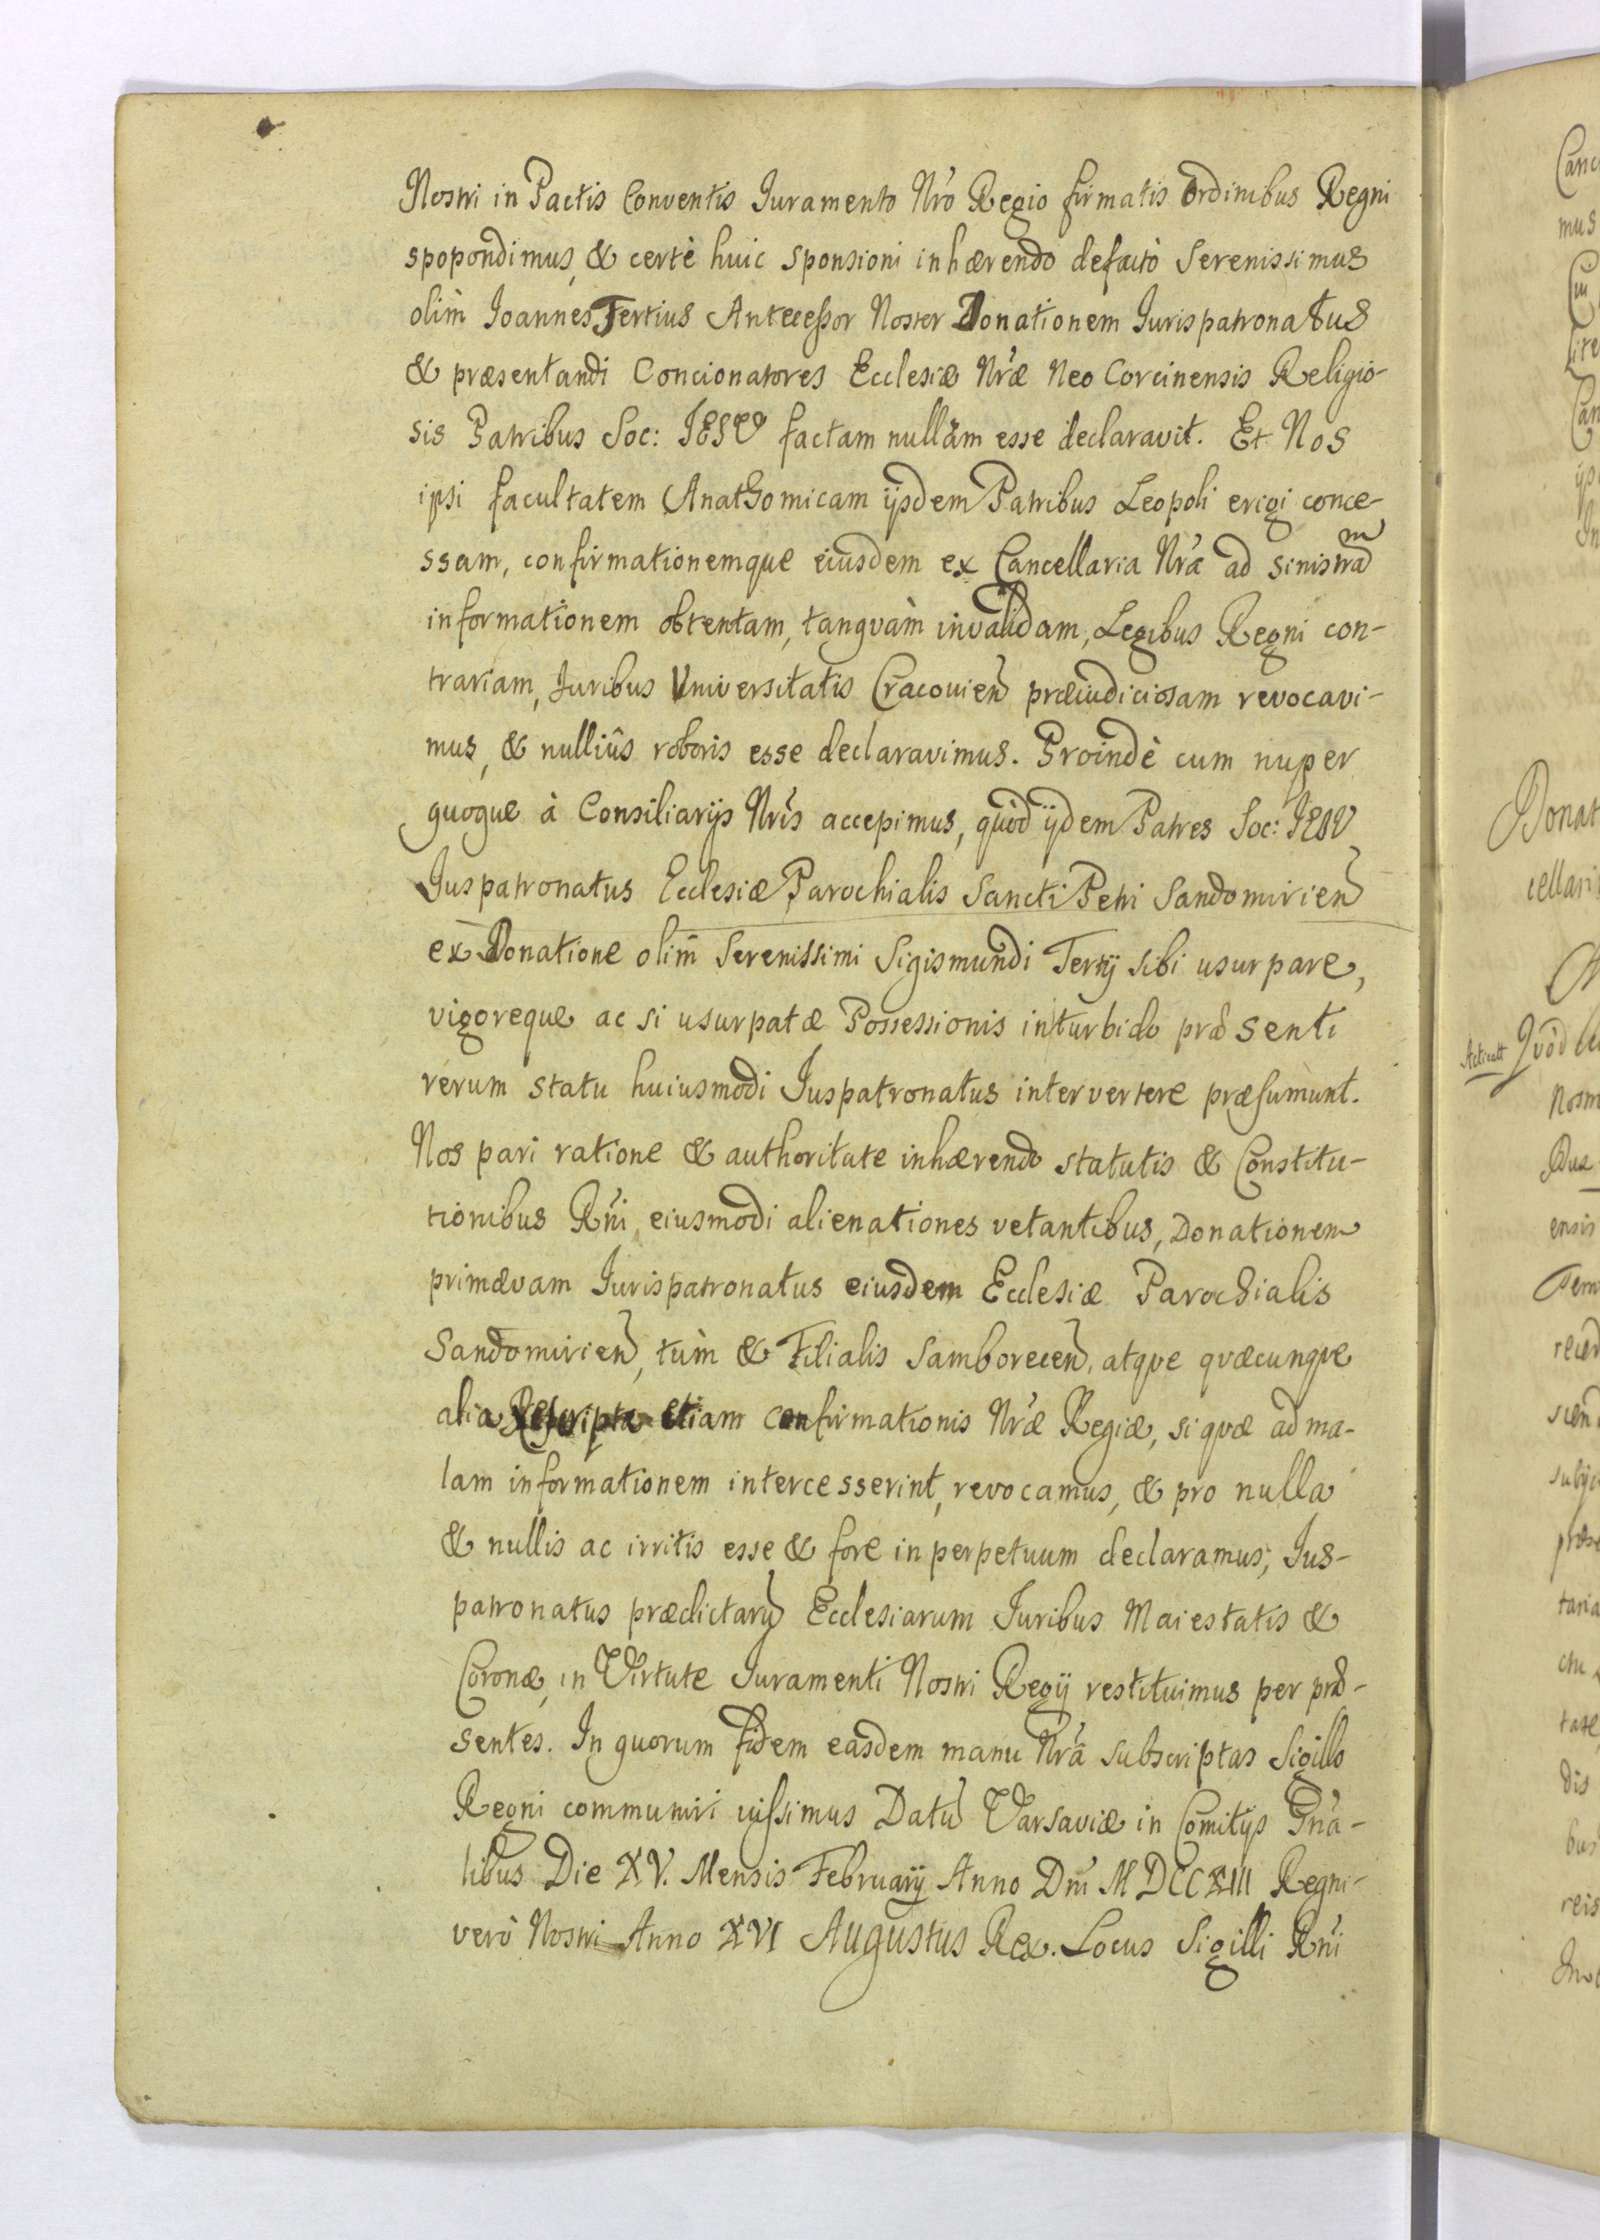 Nostri in Pactis Conventis Iuramento Nro Regio firmatis Ordinibus Regni
spopondimus, & certè huic sponsioni inhærendo defactò Serenissimus
olim Ioannes Tertius Antecessor Noster Donationem Iurispatronatus
& præsentandi Concionatores Ecclesiæ Nræ Neo Corcinensis Religio-
sis Patribus Soc: IESV factam nullam esse declaravit. Et Nos
ipsi facultatem Anathomicam ijsdem Patribus Leopoli erigi conce-
ssam, confirmationemque eiusdem ex Cancellaria Nrâ ad sinistram
informationem obtentam, tanqvàm invalidam, Legibus Regni con-
trariam, Iuribus Vniversitatis Cracouien præiudiciosam revocavi-
mus, & nulliûs roboris esse declaravimus. Proindè cum nuper
quoque à Consiliarijs Nris accepimus, quòd ijdem Patres Soc: IESV
Iuspatronatus Ecclesiæ Parochialis Sancti Petri Sandomirien
ex Donatione olim Serenissimi Sigismundi Tertij sibi usurpare,
vigoreque ac si usurpatæ Possessionis inturbido præsenti
rerum statu huiusmodi Iuspatronatus intervertere præsumunt.
Nos pari ratione & authoritate inhærendo statutis & Constitu-
tionibus Rni, eiusmodi alienationes vetantibus, Donationem
primævam Iurispatronatus eiusdem Ecclesiæ Parochialis
Sandomirien, tùm & Filialis Samborecen, atqve qvæcunqve
alia Rescripta etiam confirmationis Nræ Regiæ, si qvæ ad ma-
lam informationem intercesserint, revocamus, & pro nulla
& nullis ac irritis esse & fore in perpetuum declaramus; Ius-
patronatus prædictaru Ecclesiarum Iuribus Maiestatis &
Coronæ, in Virtute Iuramenti Nostri Regij restituimus per præ-
sentes. In quorum fidem easdem manu Nrâ subscriptas Sigillo
Regni communiri iussimus Datu Varsaviæ in Comitijs Gna-
libus Die XV. Mensis February Anno Dni MDCCXIII Regni
verò Nostri Anno XVI Augustus Rex. Locus Sigilli Rni
Donat
cellari
Activatt Qvòd
mus
ensis
reis